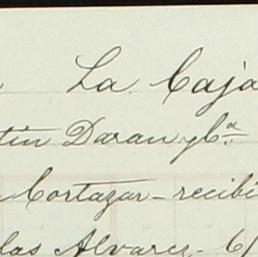 La Caja
tin Daran y Cª.
Cortazar - recibi
las Alvarez - 6/